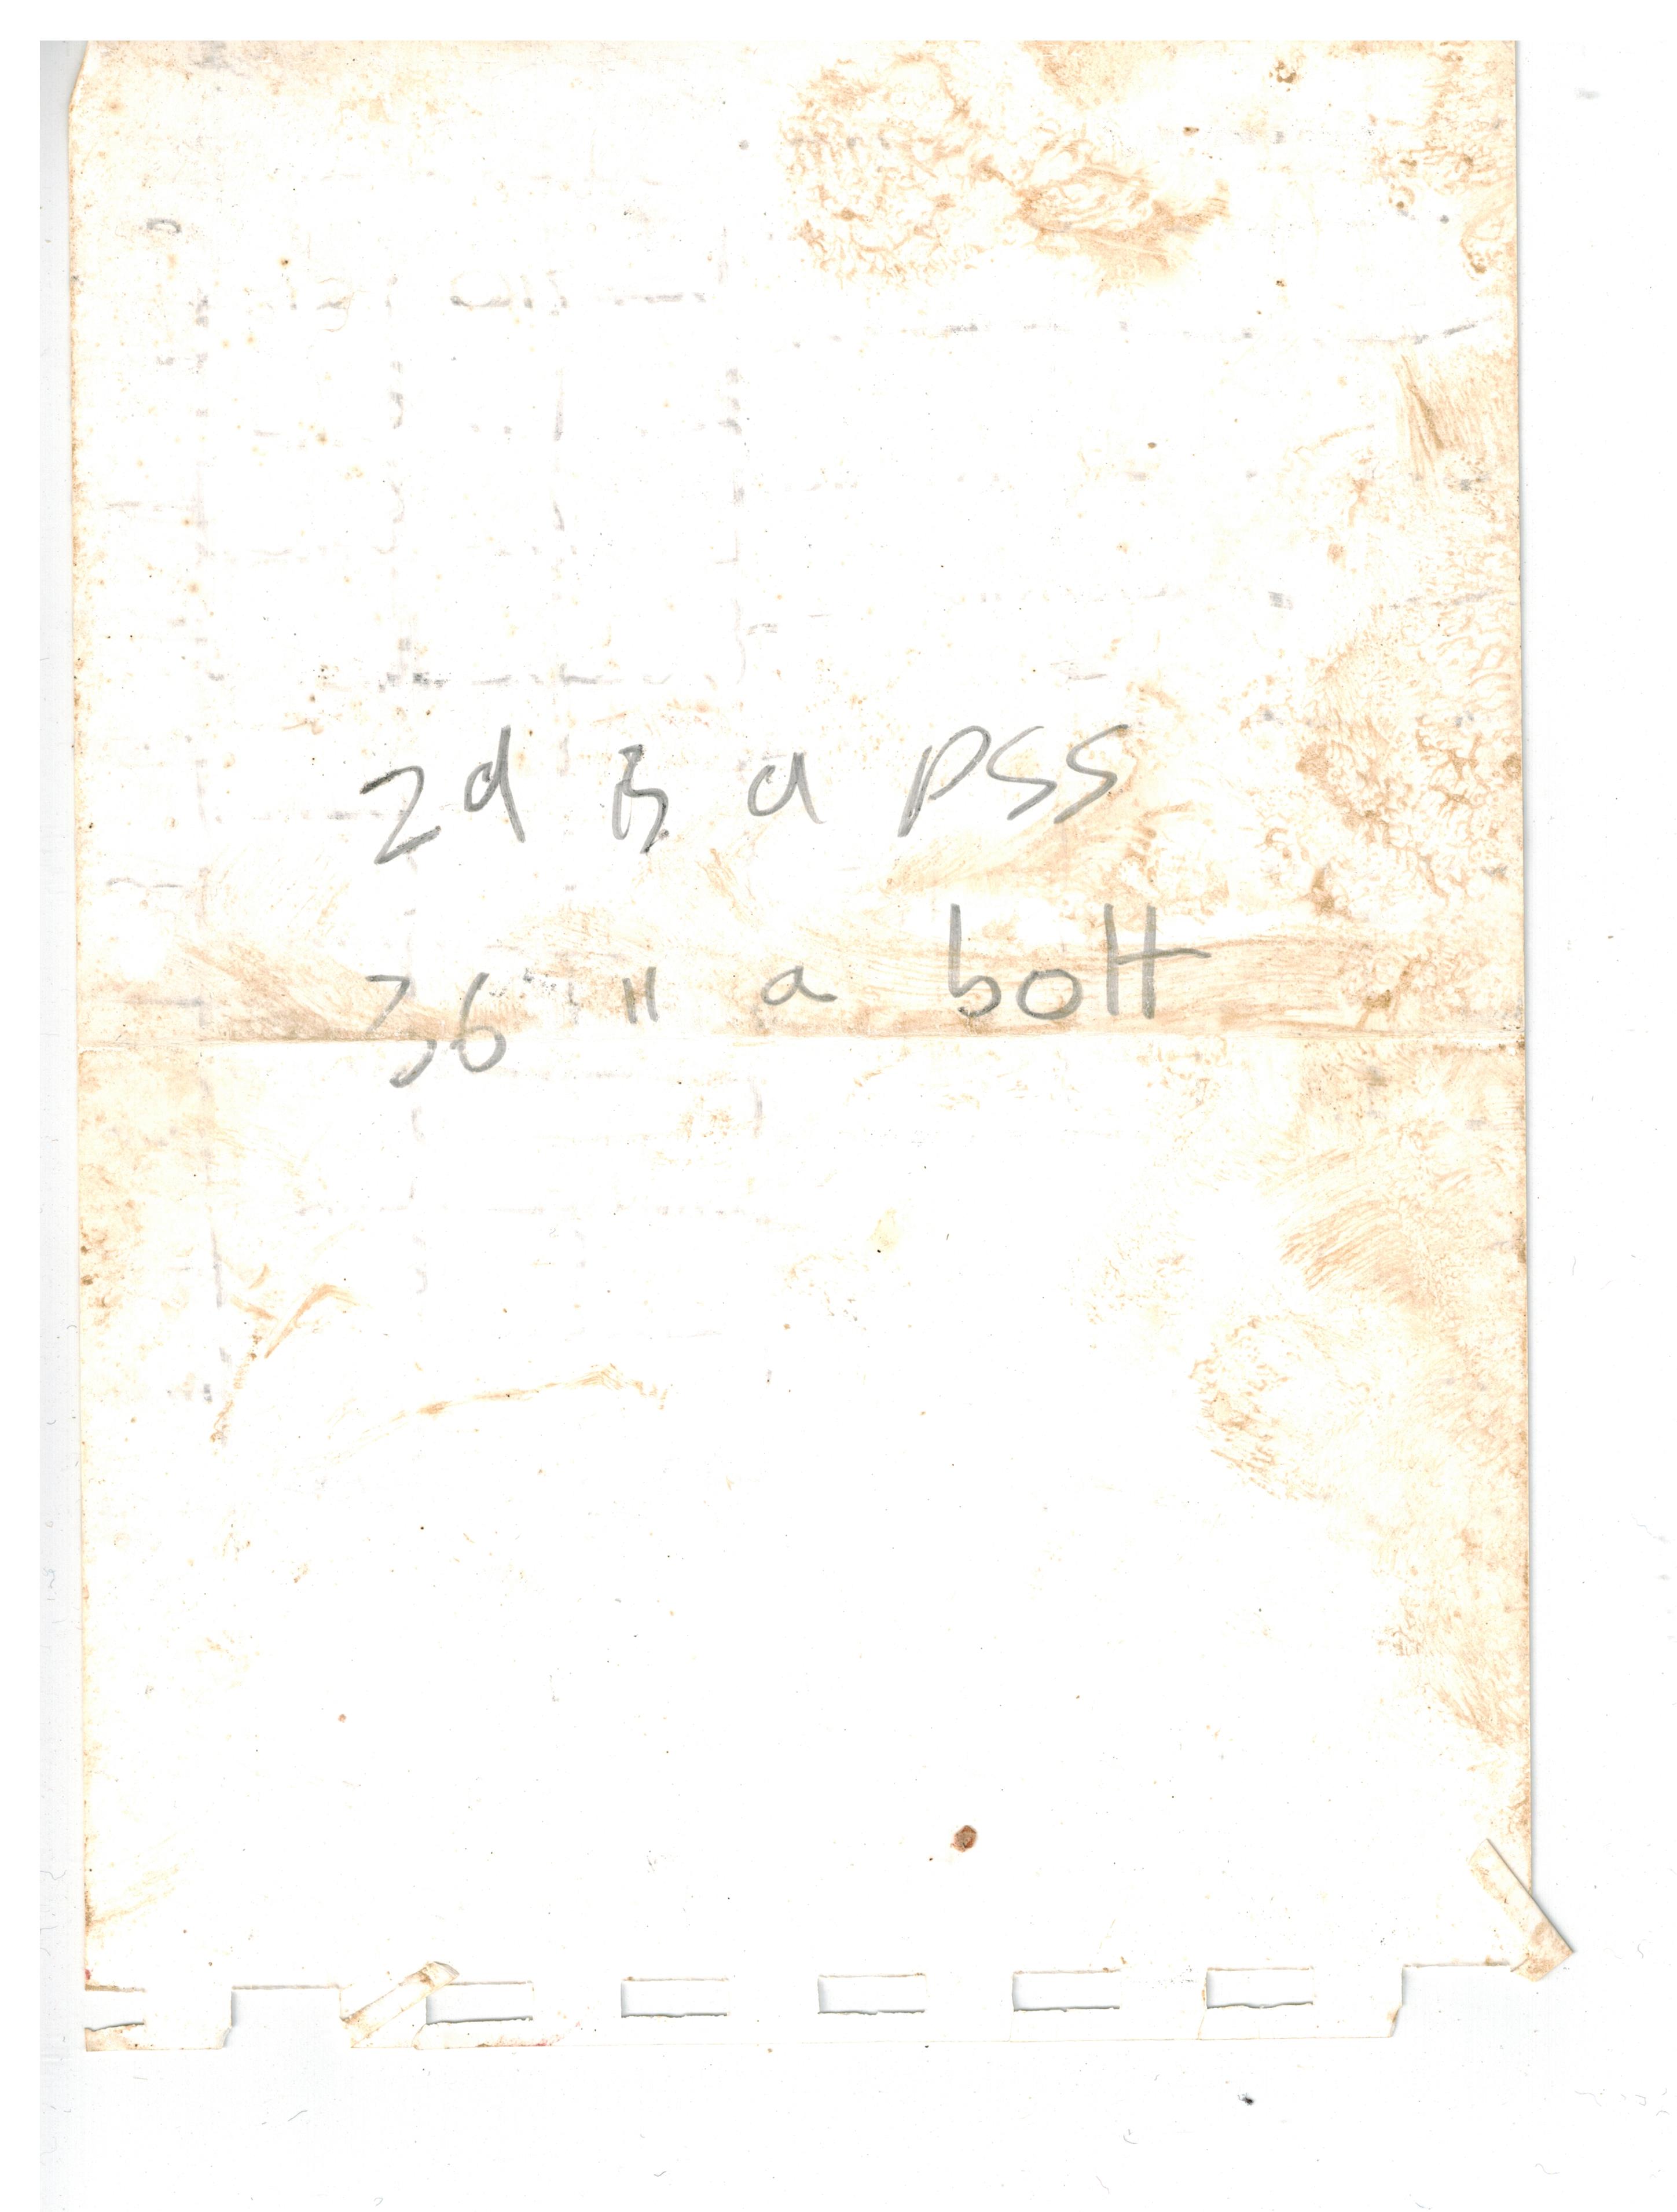 2d is a pss
36 " a bolt